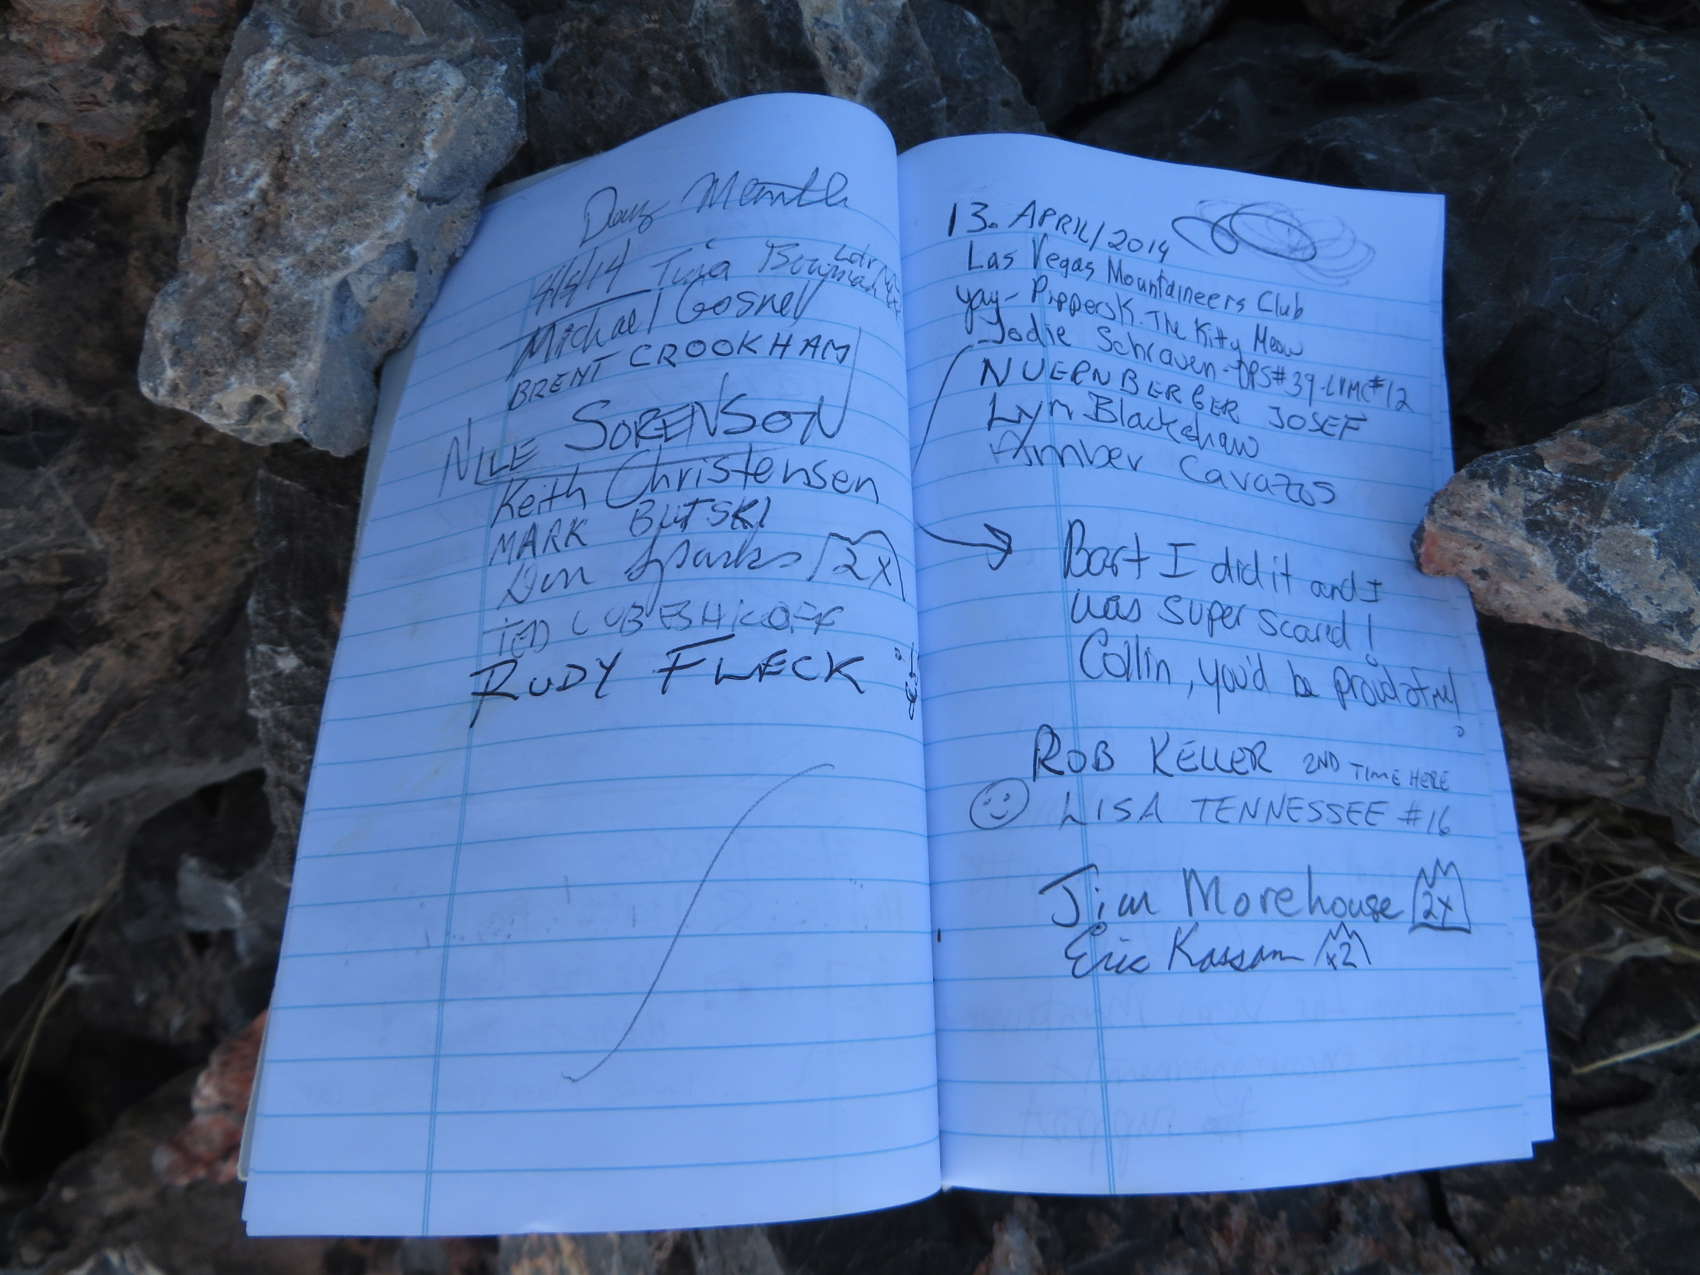 4/5/14 Tina
Michael Gosnell
BRENT CROOKHAM
NILE SORENSON
Keith Christensen
MARK BUTSKI
Sparks 2x
TED LUBESHKOFF
RUDY FLECK
13. APRIL/2014
Las Vegas Mountaineers Club
yay- PippersK. The Kitty Meow
Jodie Schraven-DPS#39-LVMC#12
NUERNBERBER JOSEF
Lyn Blackshaw
Amber Cavazos
Bart I did it and I
was super scared!
Collin, you'd be proud of me!
ROB KELLER 2ND TIME HERE
LISA TENNESSEE #16
Jim Morehouse 2x
Eric Kassan x2